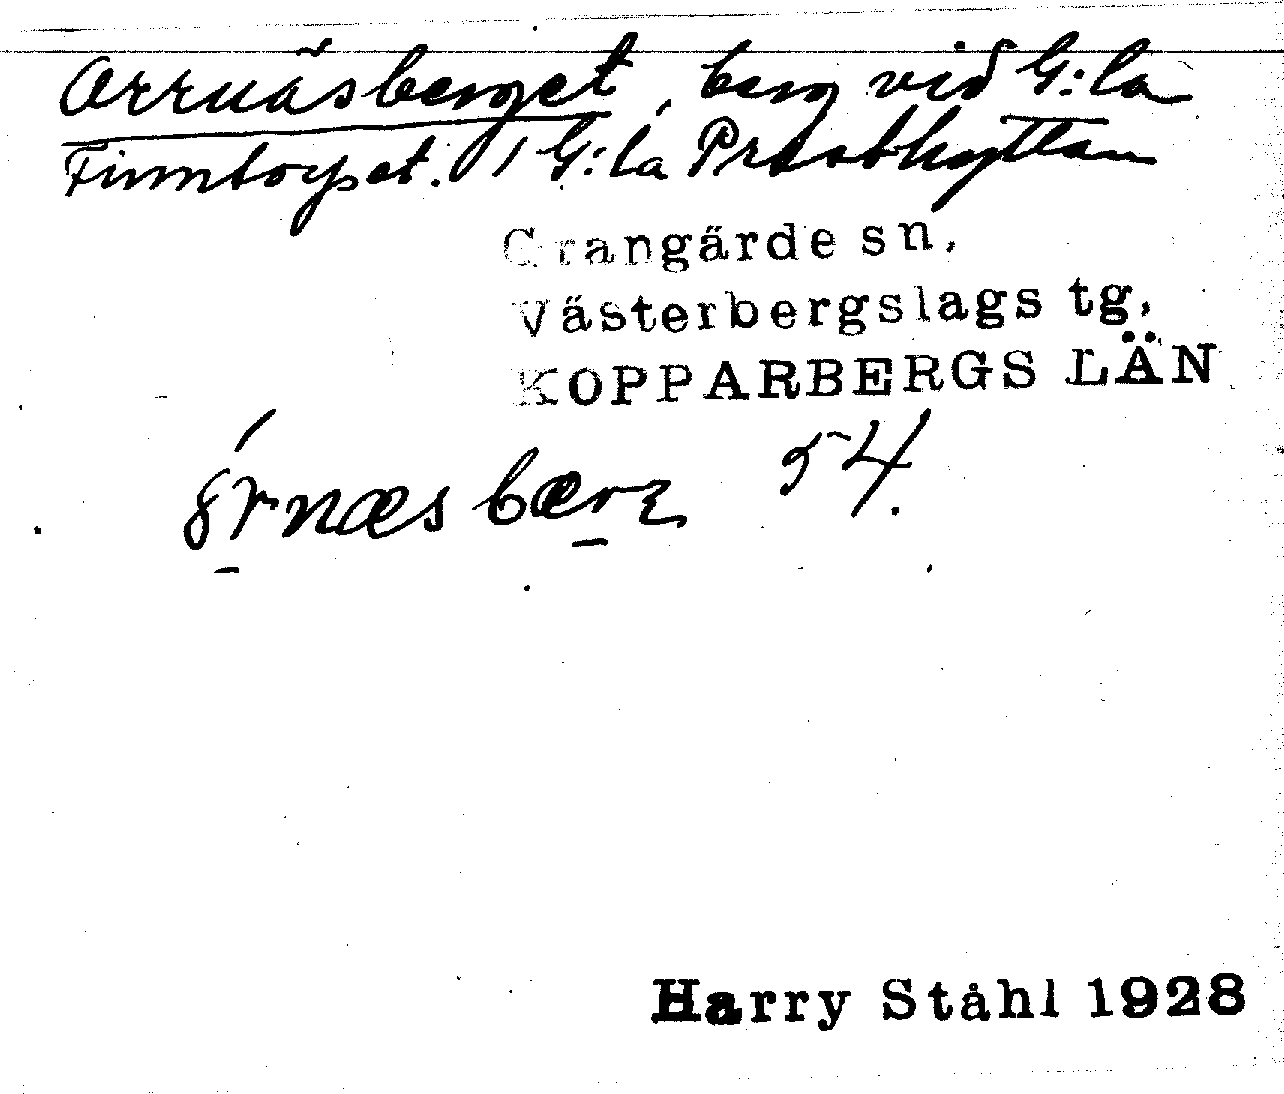 Orrnäsberget, berg vid G:la
Finntorpet. I G:la Prästhyttan
Grangärde sn.
Västerbergslags tg.
KOPPARBERGS LÄN
54.
Harry Ståhl 1928